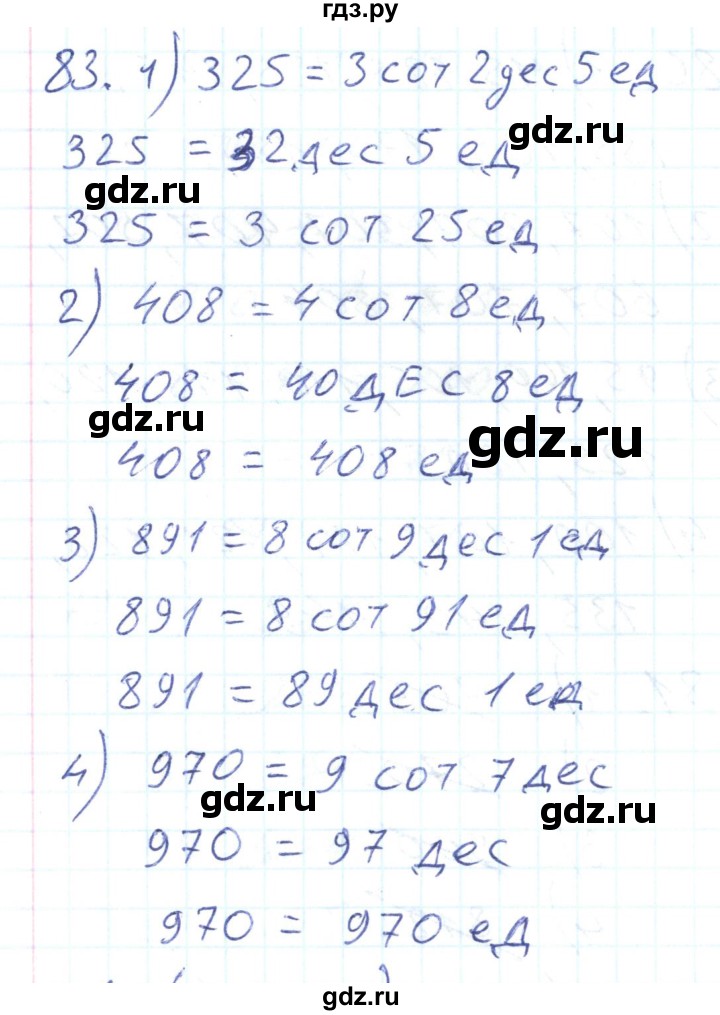 гдз.ру
83. 1) 325 = 3 сот 2 дес 5 ед
325 = 32 дес 5 ед
gdz.ru
gdz.ru
325 = 3 сот 25 ед
2) 408 = 4 сот 8 ед
408 = 40 ДЕС 8 ед
gdz.ru
gdz.ru
408 = 408 ед
3) 891 = 8 сот 9 дес 1 ед
891 = 8 сот 91 ед
891 = 89 дес 1 ед
4) 970 = 9 сот 7 дес
gdz.ru
gdz.ru
970 = 97 дес
970 = 970 ед
gdz.ru